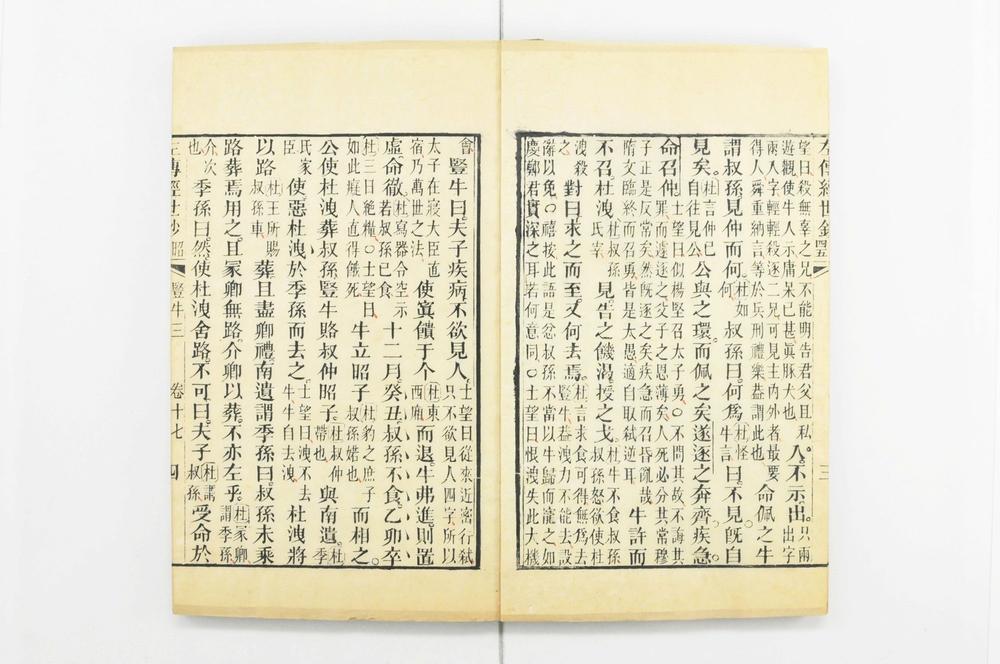 左傳經世鈔 三
望曰殺無辜之兄不能明告君父且私遊觀使牛人示庸呆已甚眞豚犬也入不示出只兩出字
兩入字輕輕殺逐二兄可見主內外者最要得人舜重納言等於兵刑禮樂葢謂此也命佩之牛
謂叔孫見仲而何杜如何叔孫曰何爲杜怪牛言曰不見旣自
見矣杜言仲已自往見公公與之環而佩之矣遂逐之奔齊疾急
命召仲士望曰似楊堅召太子勇○不問其故不誨其罪而遽逐之父子之恩薄矣人死必分其常穆
子正是反常矣然旣逐之矣疾急而召昏亂哉隋文臨終而召勇皆是大愚適自取弑逆耳牛許而
不召杜洩杜叔孫氏宰見告之饑渴授之戈杜牛不食叔孫叔孫怒欲使杜
洩殺之對曰求之而至又何去焉杜言求食可得無爲去豎牛葢洩力不能去設
辭以免○禧按此語是忿叔孫不當以牛歸而寵之如慶鄭君實深之耳若何意同○士望曰恨洩失此大機
會豎牛曰夫子疾病不欲見人士望曰從來近密行弑只不欲見人四字所以
太子在寢大臣直宿乃萬世之法使寘饋于个杜東西廂而退牛弗進則置
虛命徹杜寫器令空示若叔孫已食十二月癸丑叔孫不食乙卯卒
杜三日絕糧○士望曰如此庭人直得餓死牛立昭子杜豹之庶子叔孫婼也而相之
公使杜洩葬叔孫豎牛賂叔仲昭子杜叔仲帶也與南遺杜季
氏家臣使惡杜洩於季孫而去之士望曰洩不去牛牛自去洩杜洩將
以路杜王所賜叔孫車葬且盡卿禮南遺謂季孫曰叔孫未乘
路葬焉用之且冢卿無路介卿以葬不亦左乎杜冢卿謂季孫
介次也季孫曰然使杜洩舍路不可曰夫子杜謂叔孫受命於
左傳經世鈔 昭 豎牛三 卷十七 四